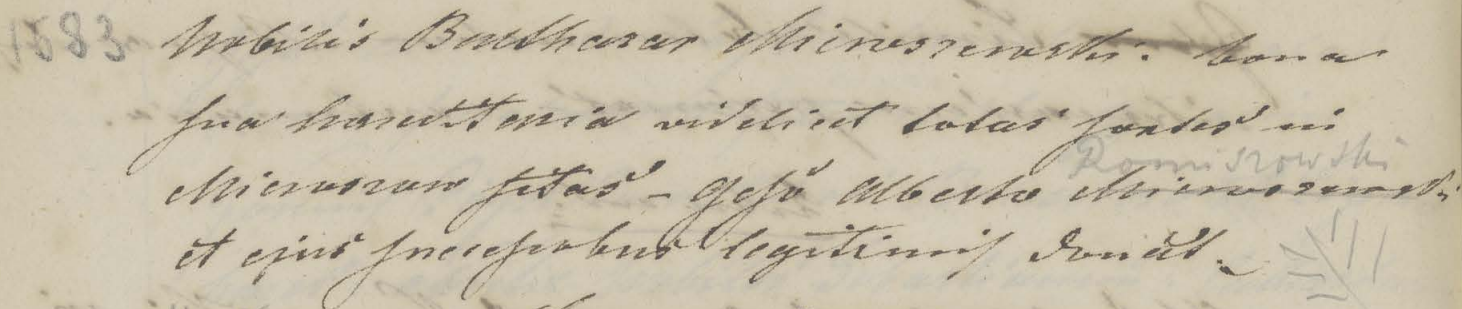 1583 Nobilis Balthasar Mieroszewski. bona
sua haereditaria videlicet totas sortes in
Romiszowski
Mieroszow sitas - Gnoso Alberto Mieroszewski
et ejus successoribus legitimis donat.